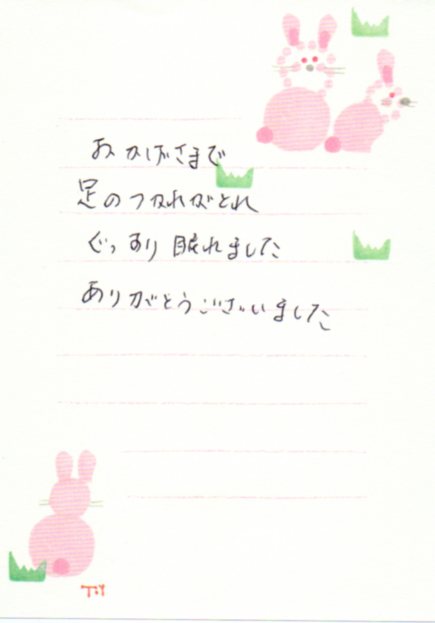 おかげさまで
足のつかれがとれ
ぐっすり眠れました
ありがとうございました